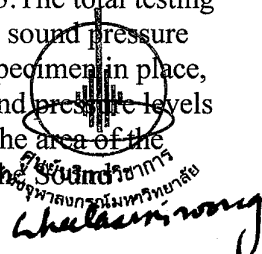 3. The total testing
sound pressure
specimen in place,
nd pressure levels
he area of the
he Sound
ศูนย์บริการวิชาการ
จุฬาลงกรณ์มหาวิทยาลัย